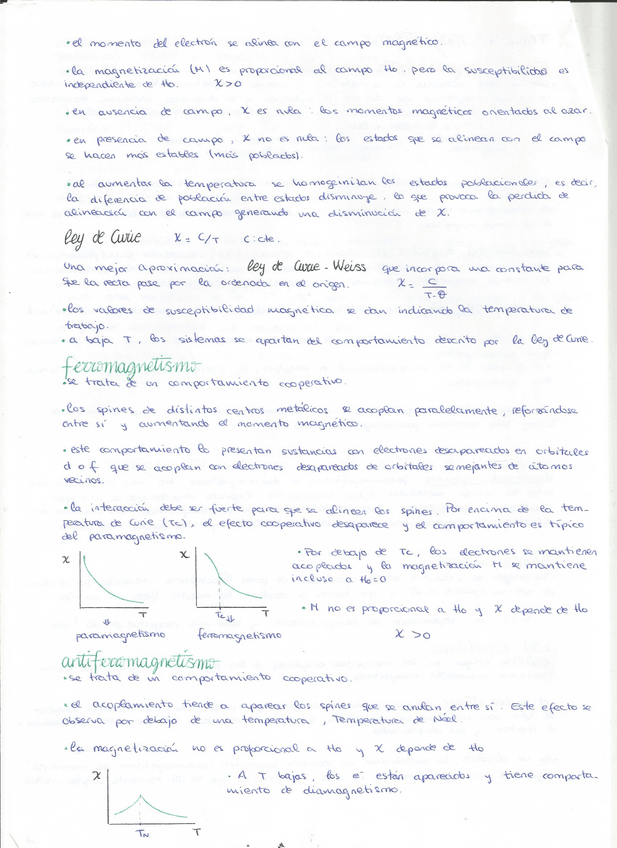 • el momento del electrón se alinea con el campo magnético.
• la magnetización (M) es proporcional al campo H₀, pero la susceptibilidad es
independiente de H₀. χ>0
• en ausencia de campo, χ es nula: los momentos magnéticos orientados al azar.
• en presencia de campo, χ no es nula: los estados que se alinean con el campo
se hacen más estables (más poblados).
• al aumentar la temperatura se homogeinizan los estados poblacionales, es decir,
la diferencia de población entre estados disminuye, lo que provoca la perdida de
alineación con el campo generando una disminución de χ.
ley de Curie χ = C/T C: cte.
Una mejor aproximación: ley de Curie-Weiss que incorpora una constante para
que la recta pase por la ordenada en el origen. χ = C/T-θ
• los valores de susceptibilidad magnética se dan indicando la temperatura de
trabajo.
• a baja T, los sistemas se apartan del comportamiento descrito por la ley de Curie.
ferromagnetismo
• se trata de un comportamiento cooperativo.
• los spines de distintos centros metálicos se acoplan paralelamente, reforzándose
entre sí y aumentando el momento magnético.
• este comportamiento lo presentan sustancias con electrones desapareados en orbitales
d o f que se acoplan con electrones desapareados de orbitales semejantes de átomos
vecinos.
• la interacción debe ser fuerte para que se alineen los spines. Por encima de la tem-
peratura de Curie (Tc), el efecto cooperativo desaparece y el comportamiento es típico
del paramagnetismo.
χ T ⇓ paramagnetismo
χ Tc ⇓ T ferromagnetismo
• Por debajo de Tc, los electrones se mantienen
acoplados y la magnetización M se mantiene
incluso a H₀=0
• M no es proporcional a H₀ y χ depende de H₀
χ >0
antiferromagnetismo
• se trata de un comportamiento cooperativo.
• el acoplamiento tiende a aparear los spines que se anulan entre sí. Este efecto se
observa por debajo de una temperatura, Temperatura de Néel.
• la magnetización no es proporcional a H₀ y χ depende de H₀
χ TN T
• A T bajas, los e⁻ están apareados y tiene comporta-
miento de diamagnetismo.